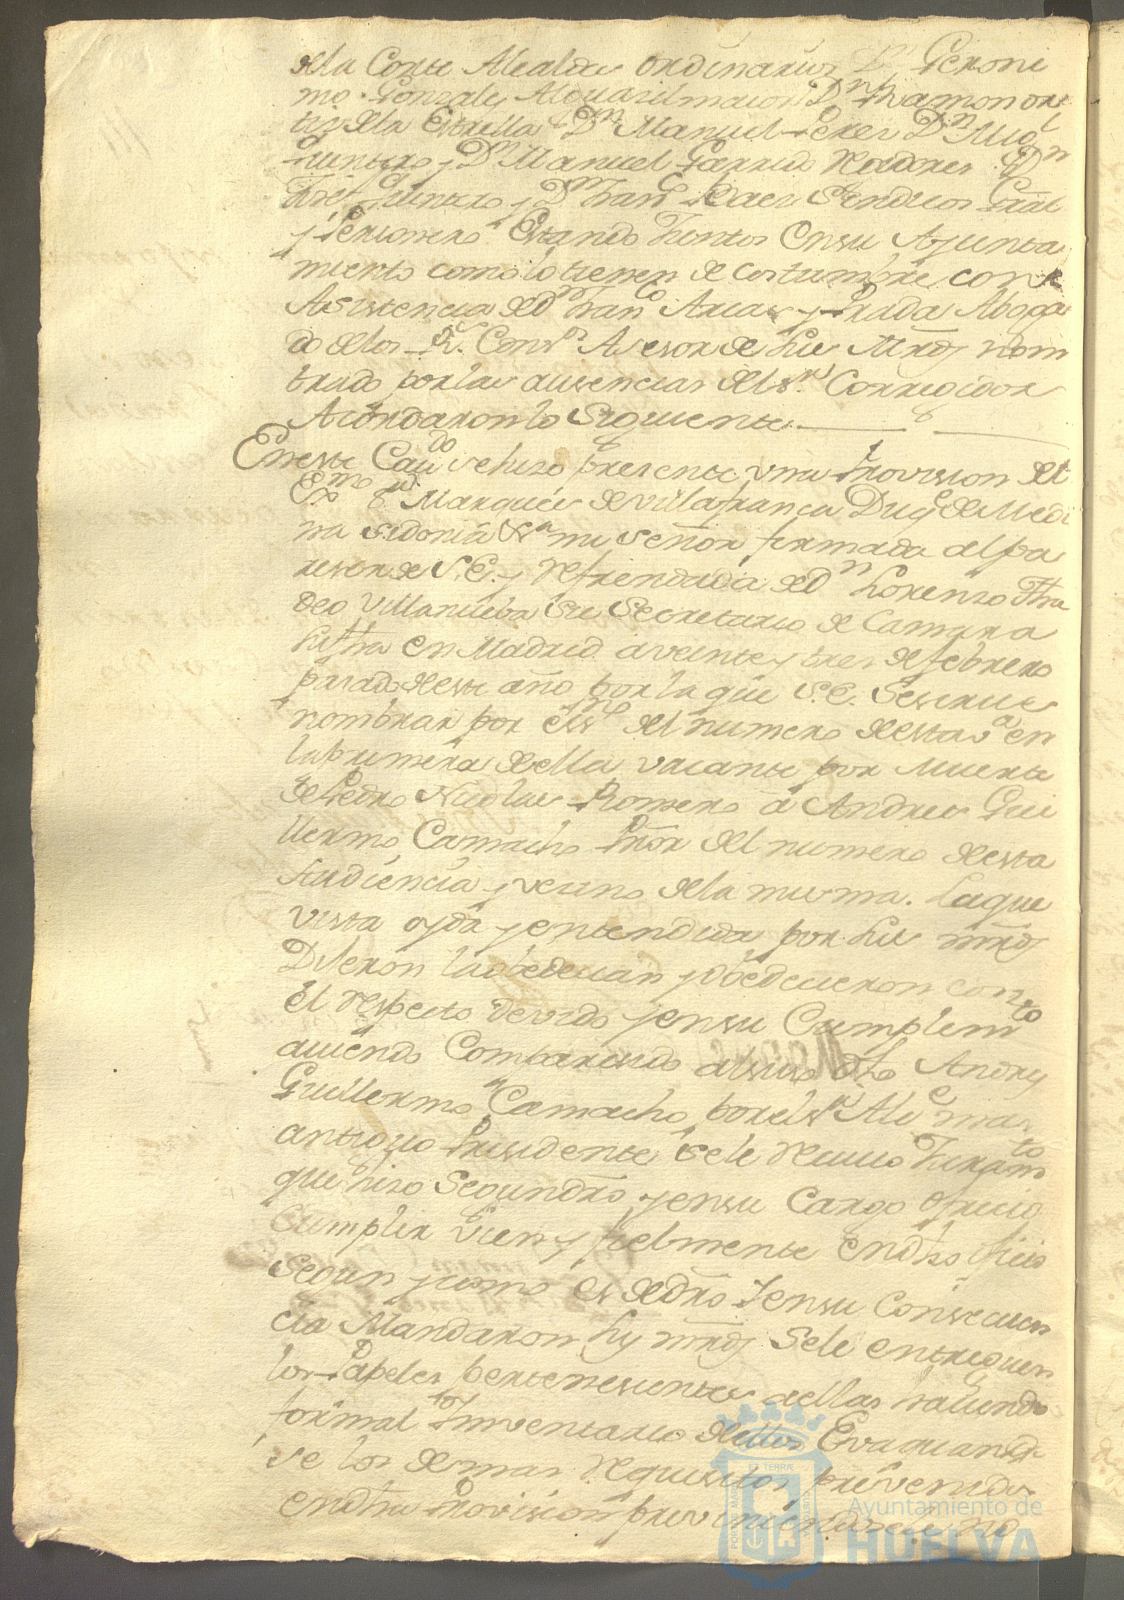 de la Corte Alcaldes ordinarios Dn Geroni
mo Gonzales Alguasil maior Dn Ramon or
tis de la Estrella Dn Manuel Peres Dn Migl
Quintero y Dn Manuel Garrido Rexidores Dn
Josef Quintero y Dn Franco Baes Sindicos Gral
y Personero Estando Juntos en su Ayunta
miento como lo tienen de costumbre con
Asistencia de Dn Franco Arias y Prada Aboga
do de los Rs Consos Asesor de sus Mrds nom
brado por las ausencias del Sr Corregidor
Acordaron lo siguiente
En este Cavdo se hiso presente una Provision del
Exmo Sr Marques de Villafranca Duqe de Medi
na Sidonia &a mi Señor firmada al pa
reser de S.E. y refrendada de Dn Lorenso Tha
deo Villanueba su Secretario de Camara
su fha en Madrid a veinte y tres de febrero
pasado de este año por la que S.E. se sirve
nombrar por essno del numero de esta va en
la primera de ella vacante por muerte
de Pedro Nicolas Romero a Andres Gui
llermo Camacho Pror del numero de esta
Audiencia y vecino de la misma. La que
vista oyda y entendida por sus mrds
Dijeron la obedecian y obedecieron con
el respecto devido y en su Cumplimto
aviendo Comparesido dho Andres
Guillermo Camacho, por el Sr Alce mas
antiguo Presidente se le recivio Juramto
que hiso segun dro y en su cargo ofrecio
Cumplir vien y fielmente en dho oficio
segun y como es de dro Y en su Consecuen
cia Mandaron sus mrds se le entreguen
los Papeles pertenesientes a ellas haciendo
formal Imventario de ellos Evaquando
se los demas requisitos prevenidos
en dha Provision previniendosele no
Ayuntamiento de
HUELVA